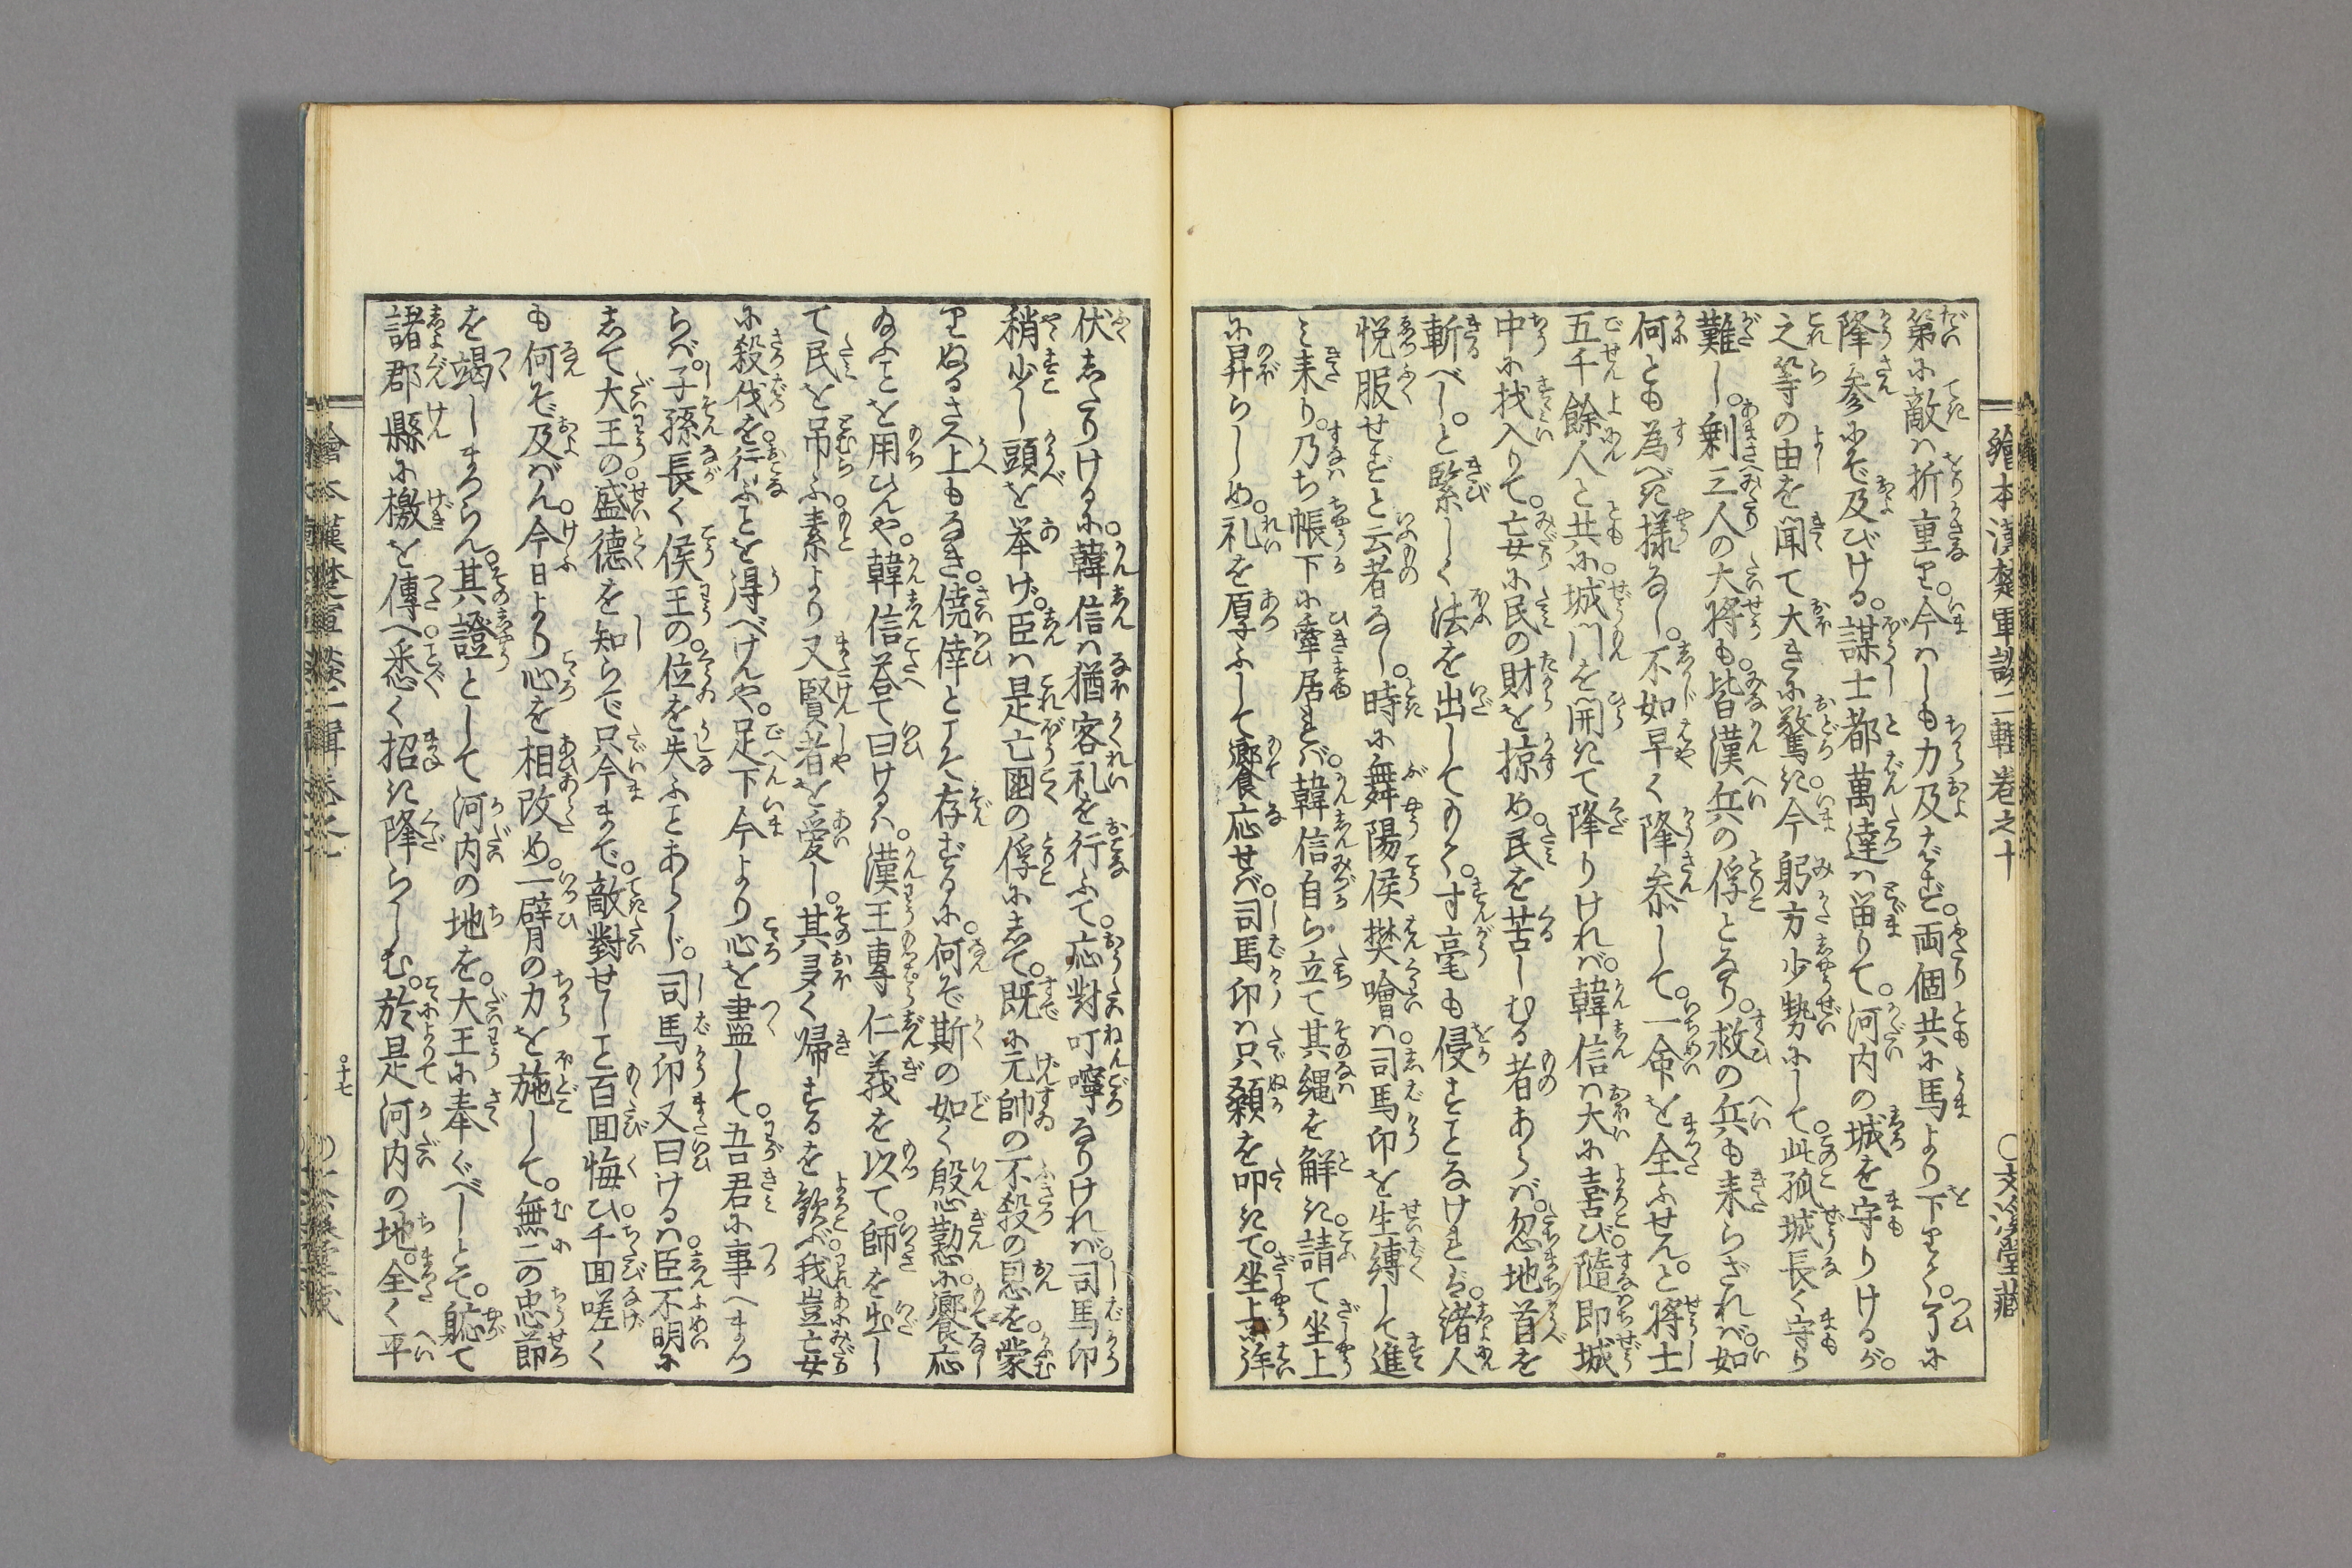 繪本漢楚軍談二輯卷之十　○文溪堂藏
第に敵ハ折重り。今ハしも力及ばず。両個共に馬より下りく。了に
降参にぞ及びける。謀士都萬達ハ留りて。河内の城を守りけるが。
之等の由を聞て大きに驚き。今躬方少勢にして。此孤城長く守り
難し。剰三人の大將も。皆漢兵の俘となり。救の兵も来らざれバ。如
何とも為べき様なし。不如早く降参して。一命を全ふせん。と將士
五千餘人と共に。城門を開きて降りけれバ。韓信ハ大に喜び。隨即城
中に找入りて。妄に民の財を掠め。民を苦しむる者あらバ。忽地首を
斬べし。と緊しく法を出してのく。寸毫も侵すことなけれど。諸人
悦服せずと云者なし。時に舞陽侯樊噲ハ。司馬卬を生縛して進
ミ来り。乃ち帳下に牽居れバ。韓信自ら立て其縄を解き。請て坐上
に昇らしめ。礼を厚ふして饗応せバ。司馬卬ハ只顙を叩きて。坐上に拜
伏したりけるに。韓信ハ猶客礼を行ふて。応對叮嚀なりけれバ。司馬卬
稍少し頭を挙げ。臣ハ是亡國の俘にして。既に元帥の不殺の恩を。蒙
りぬるさへ上もなき。僥倖とこそ存ずるに。何ぞ斯の如く慇懃に。饗応
ゐふことを用ひんや。韓信答て曰けるハ。漢王專仁義を以て。師を出し
て民を吊ふ。素より又賢者を愛し。其多く帰するを歓べ。我豈亡女
に殺伐を。行ふことを得べけんや。足下今より心を盡して。吾君に事へまゐら
らバ。子孫長く侯王の。位を失ふことあらじ。司馬卬又曰けるハ。臣不明に
して大王の。盛德を知らで只今まで。敵對せしこと百囬悔ひ。千囬嗟く
も何ぞ及バん。今日より心を相改め。一臂の力を施して。無二の忠節
を竭しまゐらん。其證として河内の地を。大王に奉ぐべしとぞ。軈て
諸郡縣に檄を傳へ。悉く招き降らしむ。於是河内の地。全く平
○十七